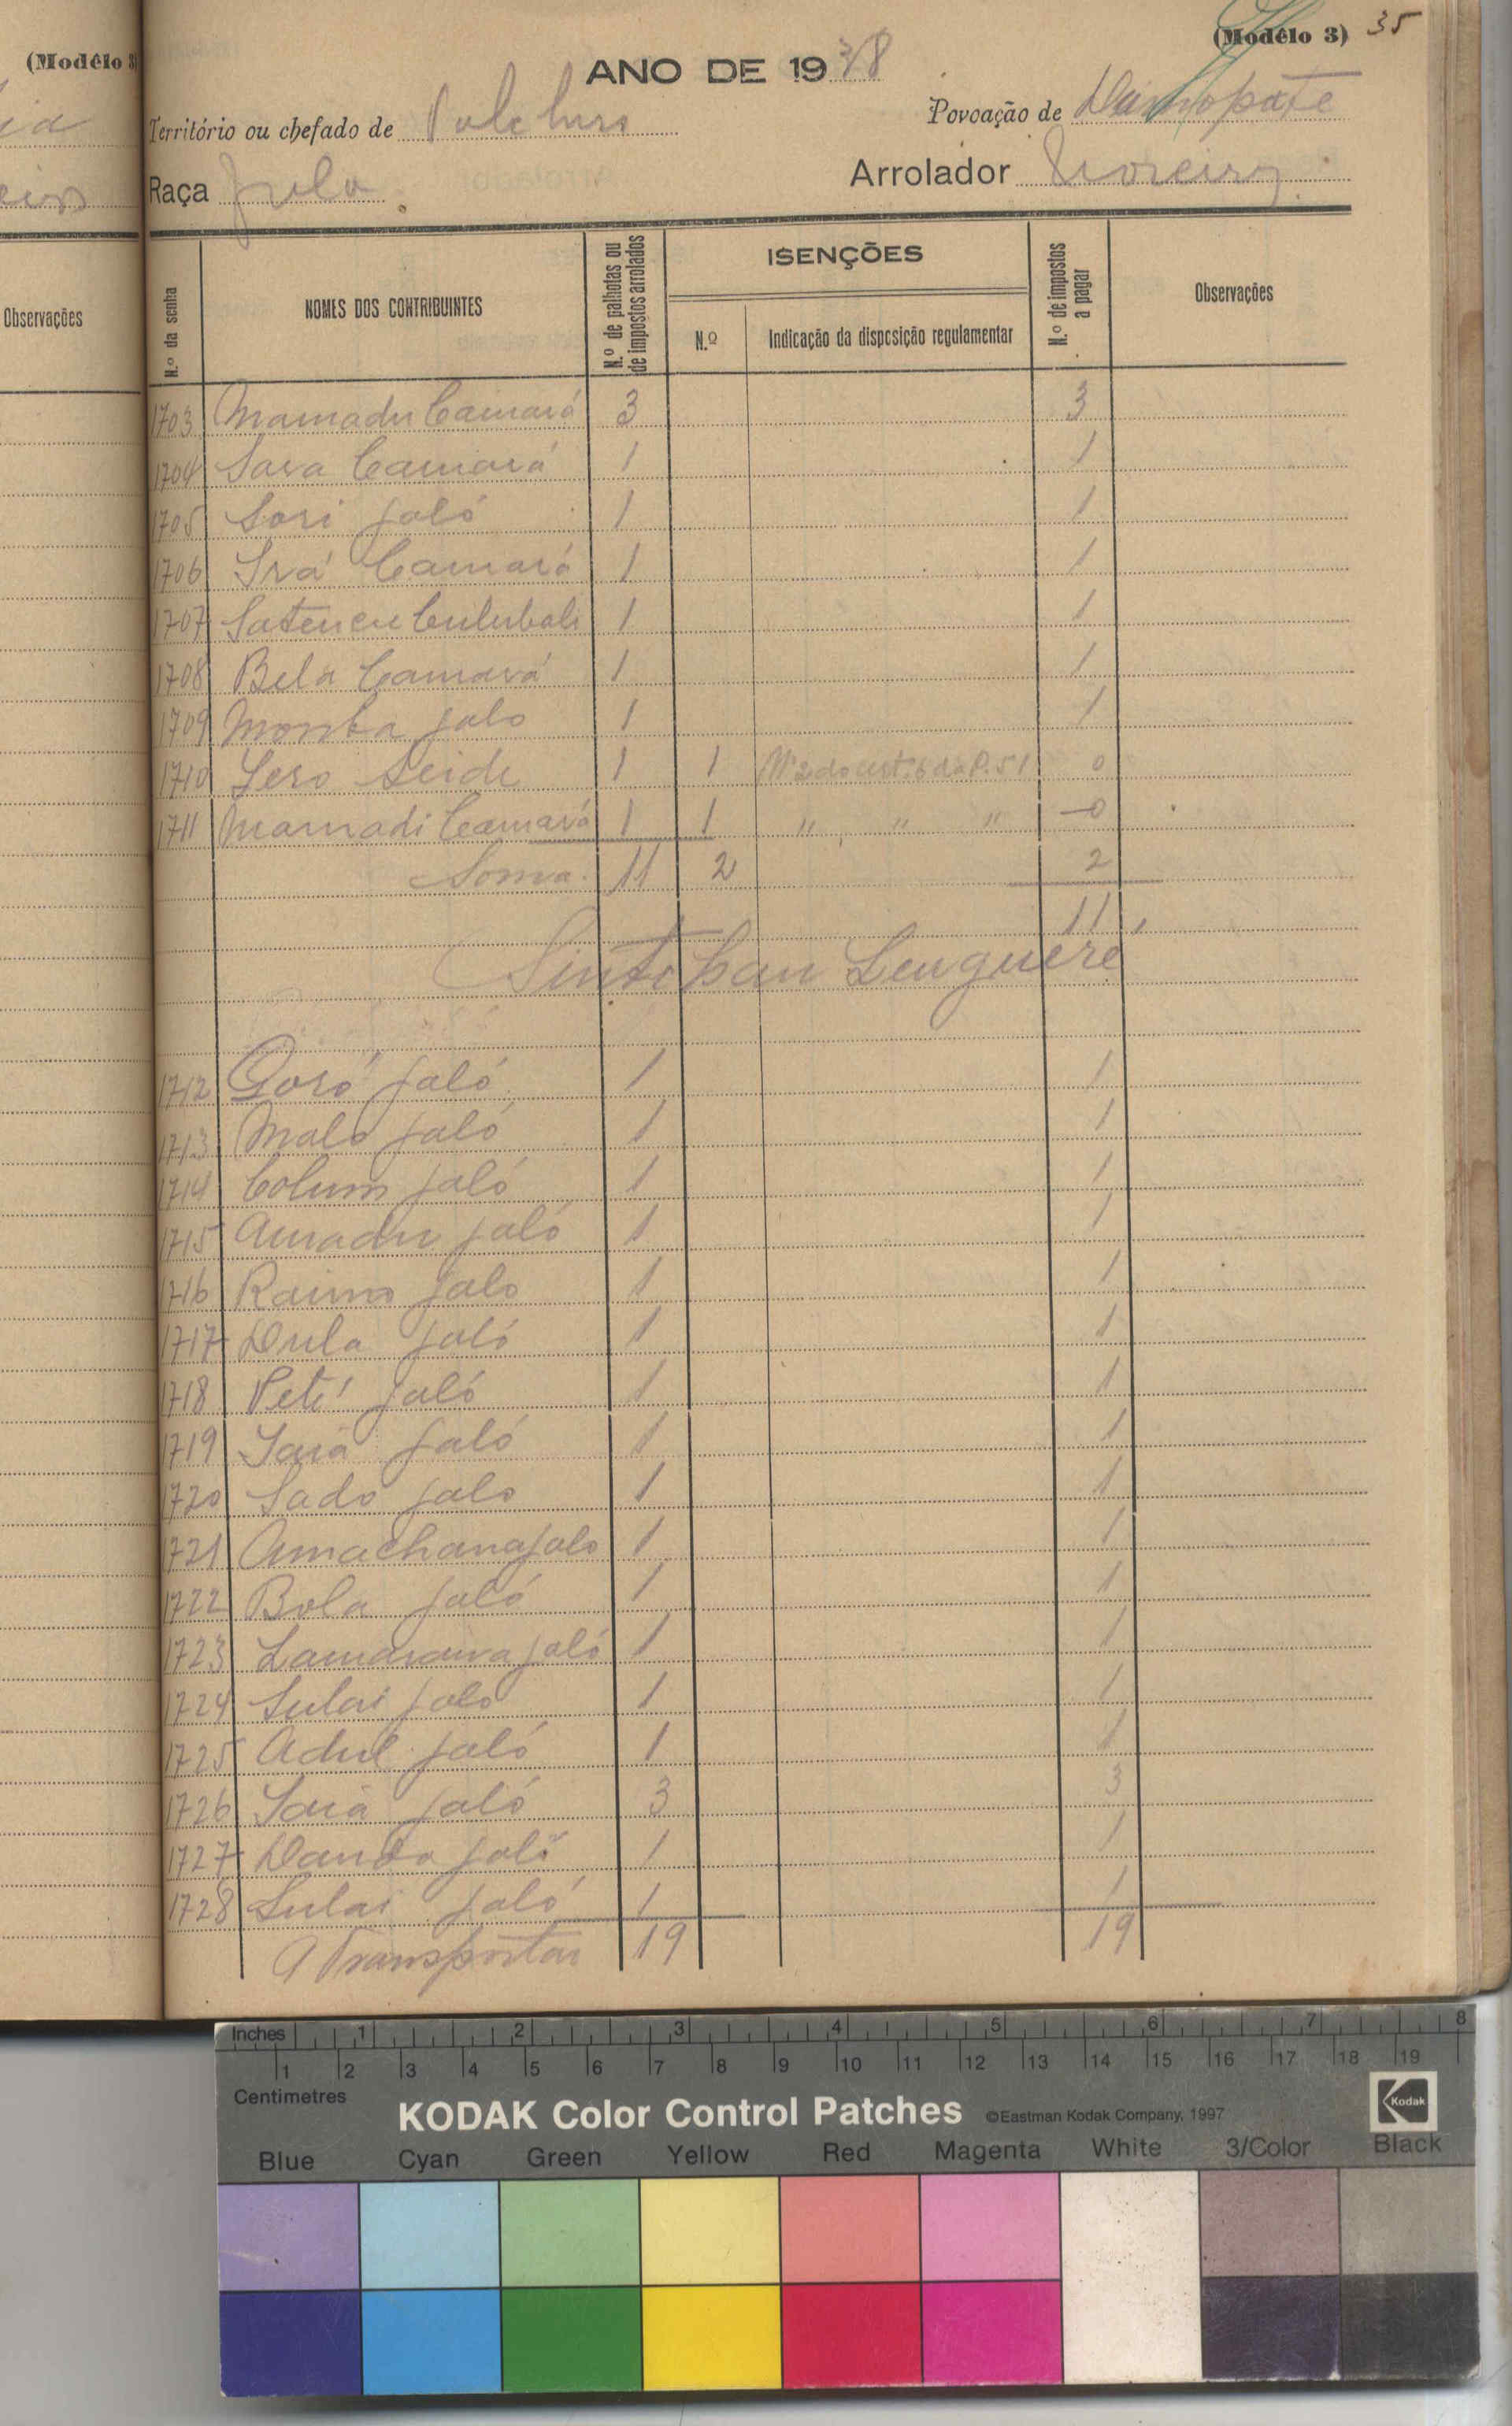 (Modêlo 3) 35
ANO DE 1938
Território ou chefado de
Povoação de
Raça Fula
Arrolador Moreira
N.º da senha
NOMES DOS CONTRIBUINTES
N.º de palhotas ou de impostos arrolados
ISENÇÕES
N.º
Indicação da disposição regulamentar
N.º de impostos a pagar
Observações
1703 Mamadu Camará 3 3
1704 Sara Camará 1 1
1705 Sori Jaló 1 1
1706 Camará 1 1
1707 1 1
1708 Bela Camará 1 1
1709 Jalo 1 1
1710 Seide 1 1 0
1711 Mamadi Camará 1 1 " " " 0
Soma 11 2 2
11
Sintchan Lenguere
1712 Goró Jaló 1 1
1713 Malo Jaló 1 1
1714 Jaló 1 1
1715 Amadu Jaló 1 1
1716 Jalo 1 1
1717 Dula Jaló 1 1
1718 Peté Jaló 1 1
1719 Jaló 1 1
1720 Sado Jalo 1 1
1721 Amachana Jalo 1 1
1722 Bola Jaló 1 1
1723 Lamarana Jaló 1 1
1724 Sulai Jalo 1 1
1725 Adul Jaló 1 1
1726 Jaló 3 3
1727 Jaló 1 1
1728 Sulai Jaló 1 1
A Transportar 19 19
(Modêlo 3
Observações
Inches 1 2 3 4 5 6 7 8
1 2 3 4 5 6 7 8 9 10 11 12 13 14 15 16 17 18 19
Centimetres
KODAK Color Control Patches ©Eastman Kodak Company, 1997 Kodak
Blue Cyan Green Yellow Red Magenta White 3/Color Black